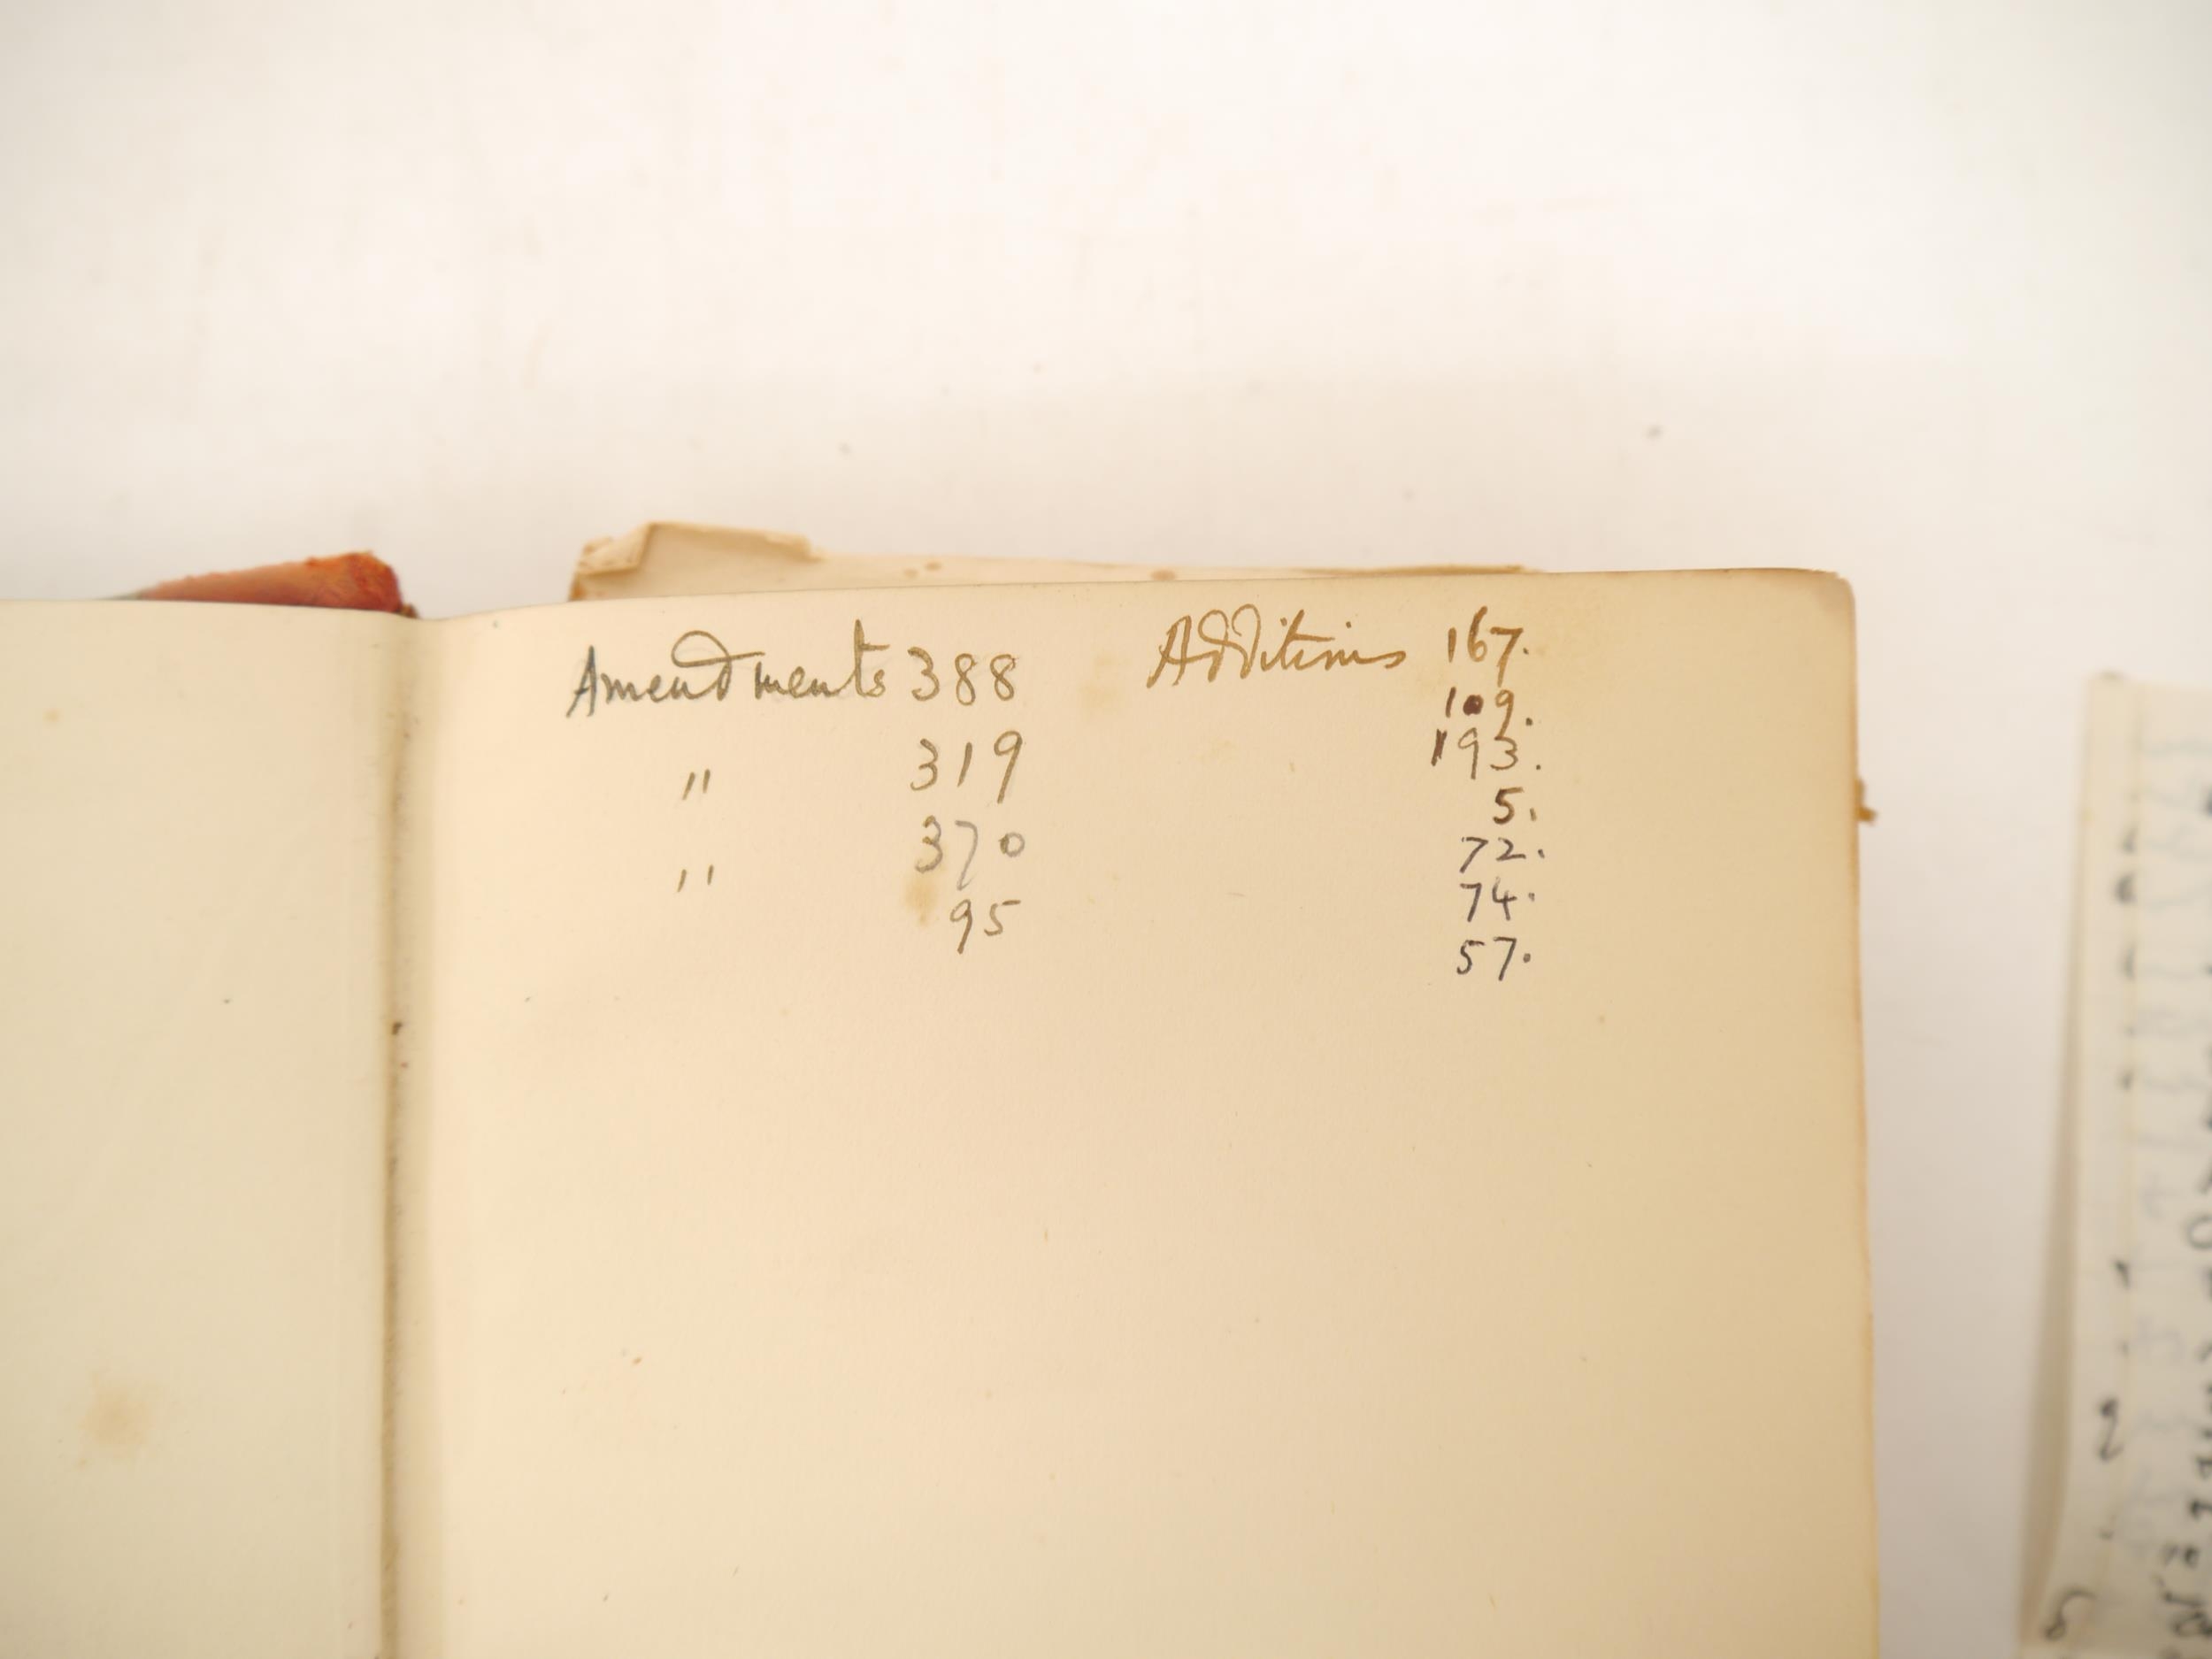 Amendments 388 Additions 167.
109.
" 319 193.
5.
" 370 72.
74.
95 57.